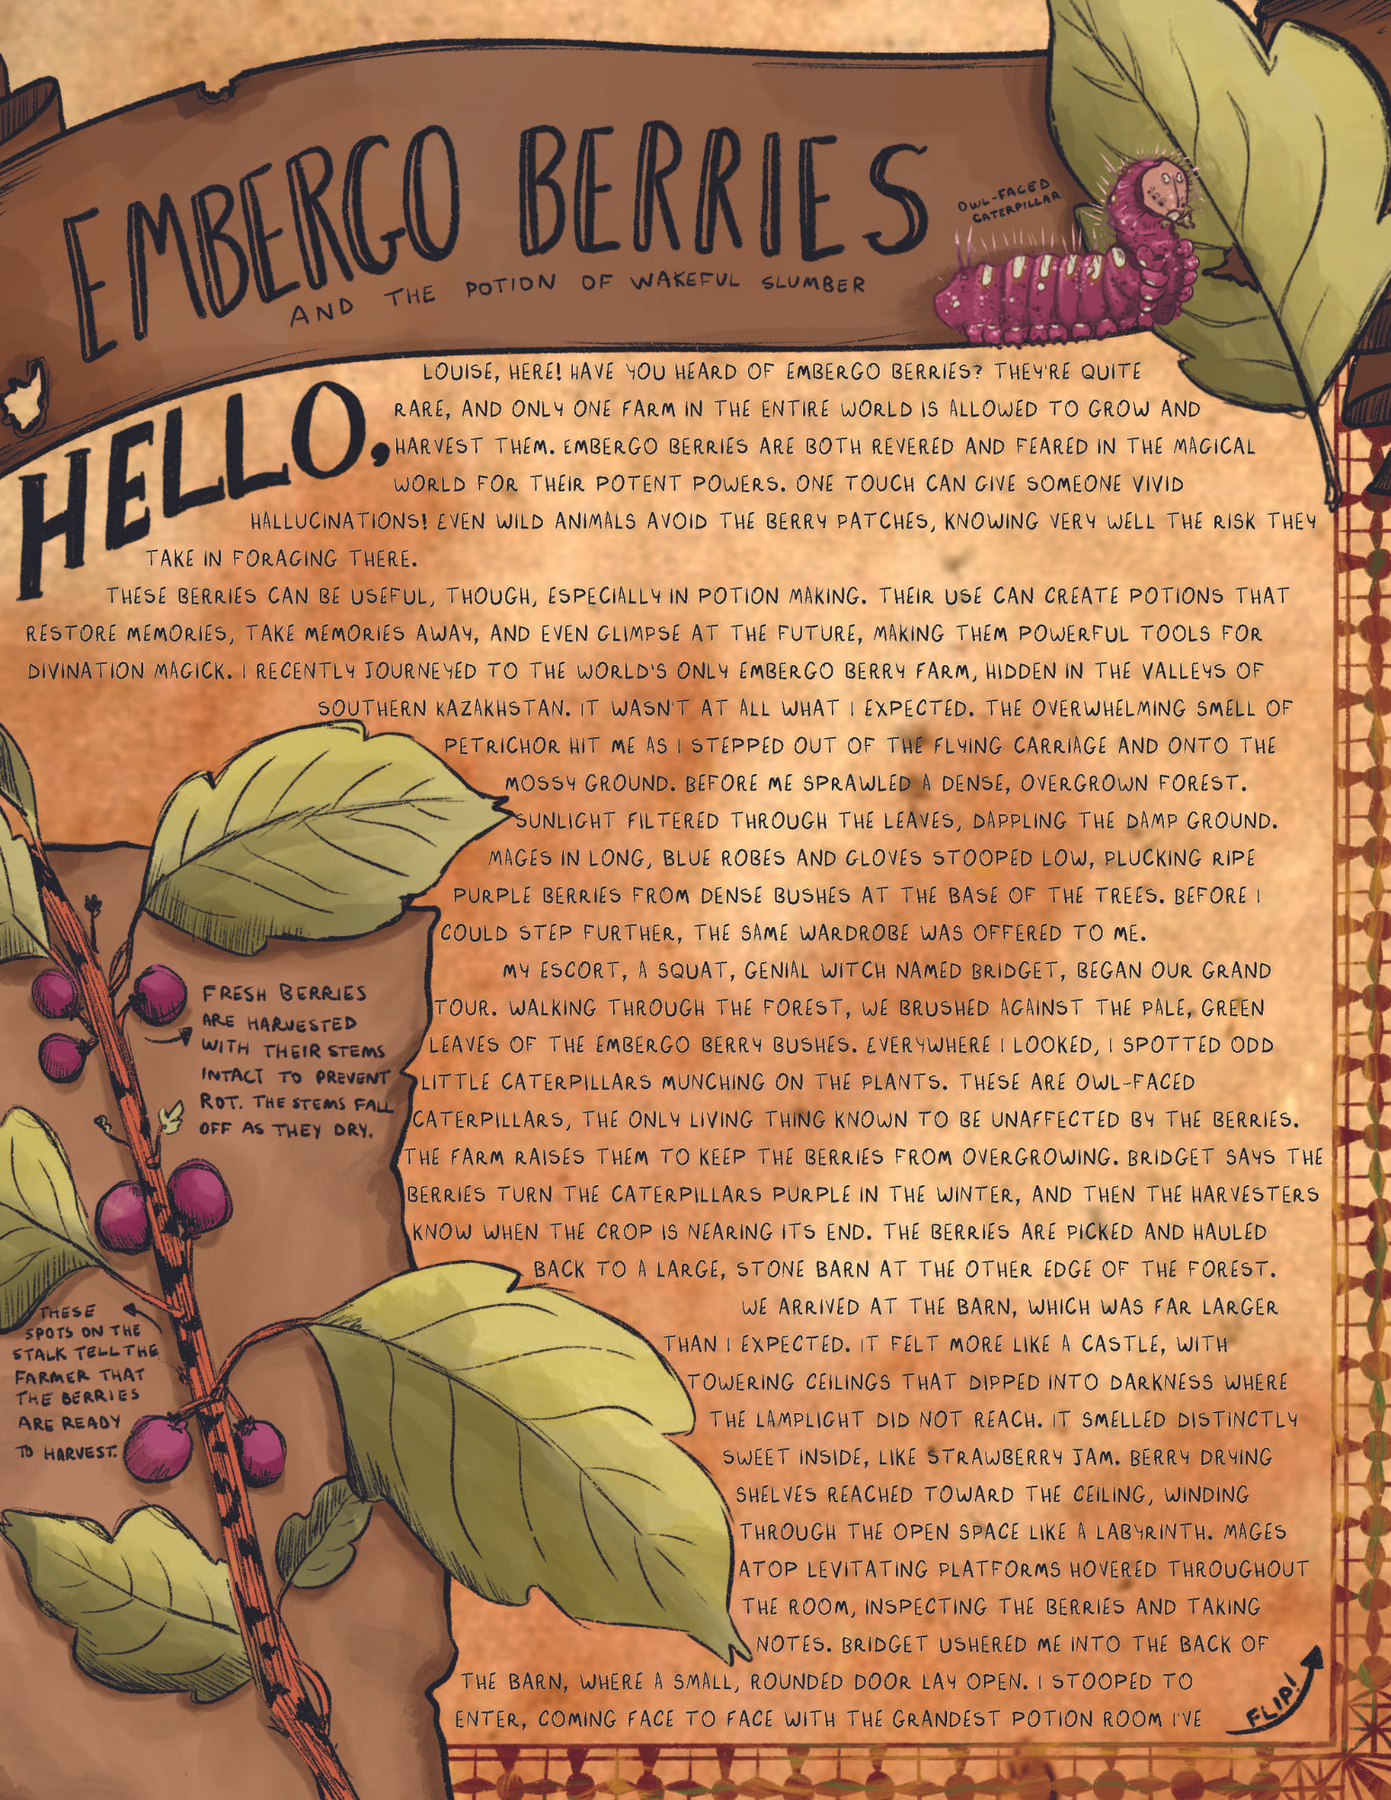 EMBERGO BERRIES
AND THE POTION OF WAKEFUL SLUMBER
OWL-FACED
CATERPILLAR
HELLO,
LOUISE, HERE! HAVE YOU HEARD OF EMBERGO BERRIES? THEY'RE QUITE
RARE, AND ONLY ONE FARM IN THE ENTIRE WORLD IS ALLOWED TO GROW AND
HARVEST THEM. EMBERGO BERRIES ARE BOTH REVERED AND FEARED IN THE MAGICAL
WORLD FOR THEIR POTENT POWERS. ONE TOUCH CAN GIVE SOMEONE VIVID
HALLUCINATIONS! EVEN WILD ANIMALS AVOID THE BERRY PATCHES, KNOWING VERY WELL THE RISK THEY
TAKE IN FORAGING THERE.
THESE BERRIES CAN BE USEFUL, THOUGH, ESPECIALLY IN POTION MAKING. THEIR USE CAN CREATE POTIONS THAT
RESTORE MEMORIES, TAKE MEMORIES AWAY, AND EVEN GLIMPSE AT THE FUTURE, MAKING THEM POWERFUL TOOLS FOR
DIVINATION MAGICK. I RECENTLY JOURNEYED TO THE WORLD'S ONLY EMBERGO BERRY FARM, HIDDEN IN THE VALLEYS OF
SOUTHERN KAZAKHSTAN. IT WASN'T AT ALL WHAT I EXPECTED. THE OVERWHELMING SMELL OF
PETRICHOR HIT ME AS I STEPPED OUT OF THE FLYING CARRIAGE AND ONTO THE
MOSSY GROUND. BEFORE ME SPRAWLED A DENSE, OVERGROWN FOREST.
SUNLIGHT FILTERED THROUGH THE LEAVES, DAPPLING THE DAMP GROUND.
MAGES IN LONG, BLUE ROBES AND GLOVES STOOPED LOW, PLUCKING RIPE
PURPLE BERRIES FROM DENSE BUSHES AT THE BASE OF THE TREES. BEFORE I
COULD STEP FURTHER, THE SAME WARDROBE WAS OFFERED TO ME.
MY ESCORT, A SQUAT, GENIAL WITCH NAMED BRIDGET, BEGAN OUR GRAND
TOUR. WALKING THROUGH THE FOREST, WE BRUSHED AGAINST THE PALE, GREEN
LEAVES OF THE EMBERGO BERRY BUSHES. EVERYWHERE I LOOKED, I SPOTTED ODD
LITTLE CATERPILLARS MUNCHING ON THE PLANTS. THESE ARE OWL-FACED
CATERPILLARS, THE ONLY LIVING THING KNOWN TO BE UNAFFECTED BY THE BERRIES.
THE FARM RAISES THEM TO KEEP THE BERRIES FROM OVERGROWING. BRIDGET SAYS THE
BERRIES TURN THE CATERPILLARS PURPLE IN THE WINTER, AND THEN THE HARVESTERS
KNOW WHEN THE CROP IS NEARING ITS END. THE BERRIES ARE PICKED AND HAULED
BACK TO A LARGE, STONE BARN AT THE OTHER EDGE OF THE FOREST.
WE ARRIVED AT THE BARN, WHICH WAS FAR LARGER
THAN I EXPECTED. IT FELT MORE LIKE A CASTLE, WITH
TOWERING CEILINGS THAT DIPPED INTO DARKNESS WHERE
THE LAMPLIGHT DID NOT REACH. IT SMELLED DISTINCTLY
SWEET INSIDE, LIKE STRAWBERRY JAM. BERRY DRYING
SHELVES REACHED TOWARD THE CEILING, WINDING
THROUGH THE OPEN SPACE LIKE A LABYRINTH. MAGES
ATOP LEVITATING PLATFORMS HOVERED THROUGHOUT
THE ROOM, INSPECTING THE BERRIES AND TAKING
NOTES. BRIDGET USHERED ME INTO THE BACK OF
THE BARN, WHERE A SMALL, ROUNDED DOOR LAY OPEN. I STOOPED TO
ENTER, COMING FACE TO FACE WITH THE GRANDEST POTION ROOM I'VE
FRESH BERRIES
ARE HARVESTED
WITH THEIR STEMS
INTACT TO PREVENT
ROT. THE STEMS FALL
OFF AS THEY DRY.
THESE
SPOTS ON THE
STALK TELL THE
FARMER THAT
THE BERRIES
ARE READY
TO HARVEST.
FLIP!